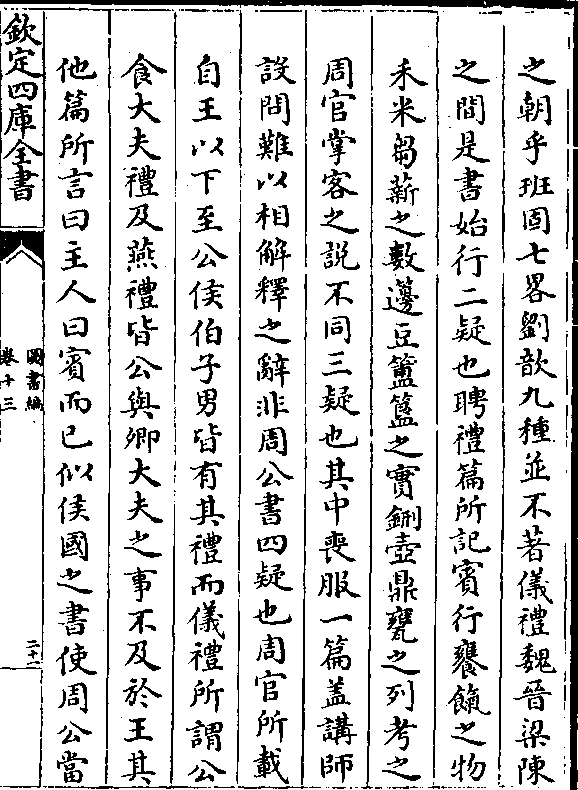 之朝乎班固七畧劉歆九種並不著儀禮魏晉梁陳
之間是書始行二疑也聘禮篇所記賓行饔餼之物
禾米芻薪之數籩豆簠簋之實鉶壺鼎甕之列考之
周官掌客之說不同三疑也其中喪服一篇盖講師
設問難以相解釋之辭非周公書四疑也周官所載
自王以下至公侯伯子男皆有其禮而儀禮所謂公
食大夫禮及燕禮皆公與卿大夫之事不及於王其
他篇所言曰主人曰賓而已似侯國之書使周公當
欽定四庫全書
圖書編
卷十三
二十二